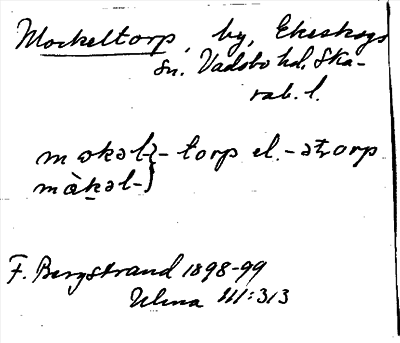 Mockeltorp, by, Ekeskogs
sn. Vadsbo hd. Ska-
rab. l.
mɷkəl}- torp el. -ətɷrp
màkəl-}
F. Bergstrand 1898-99
Ulma 111:313